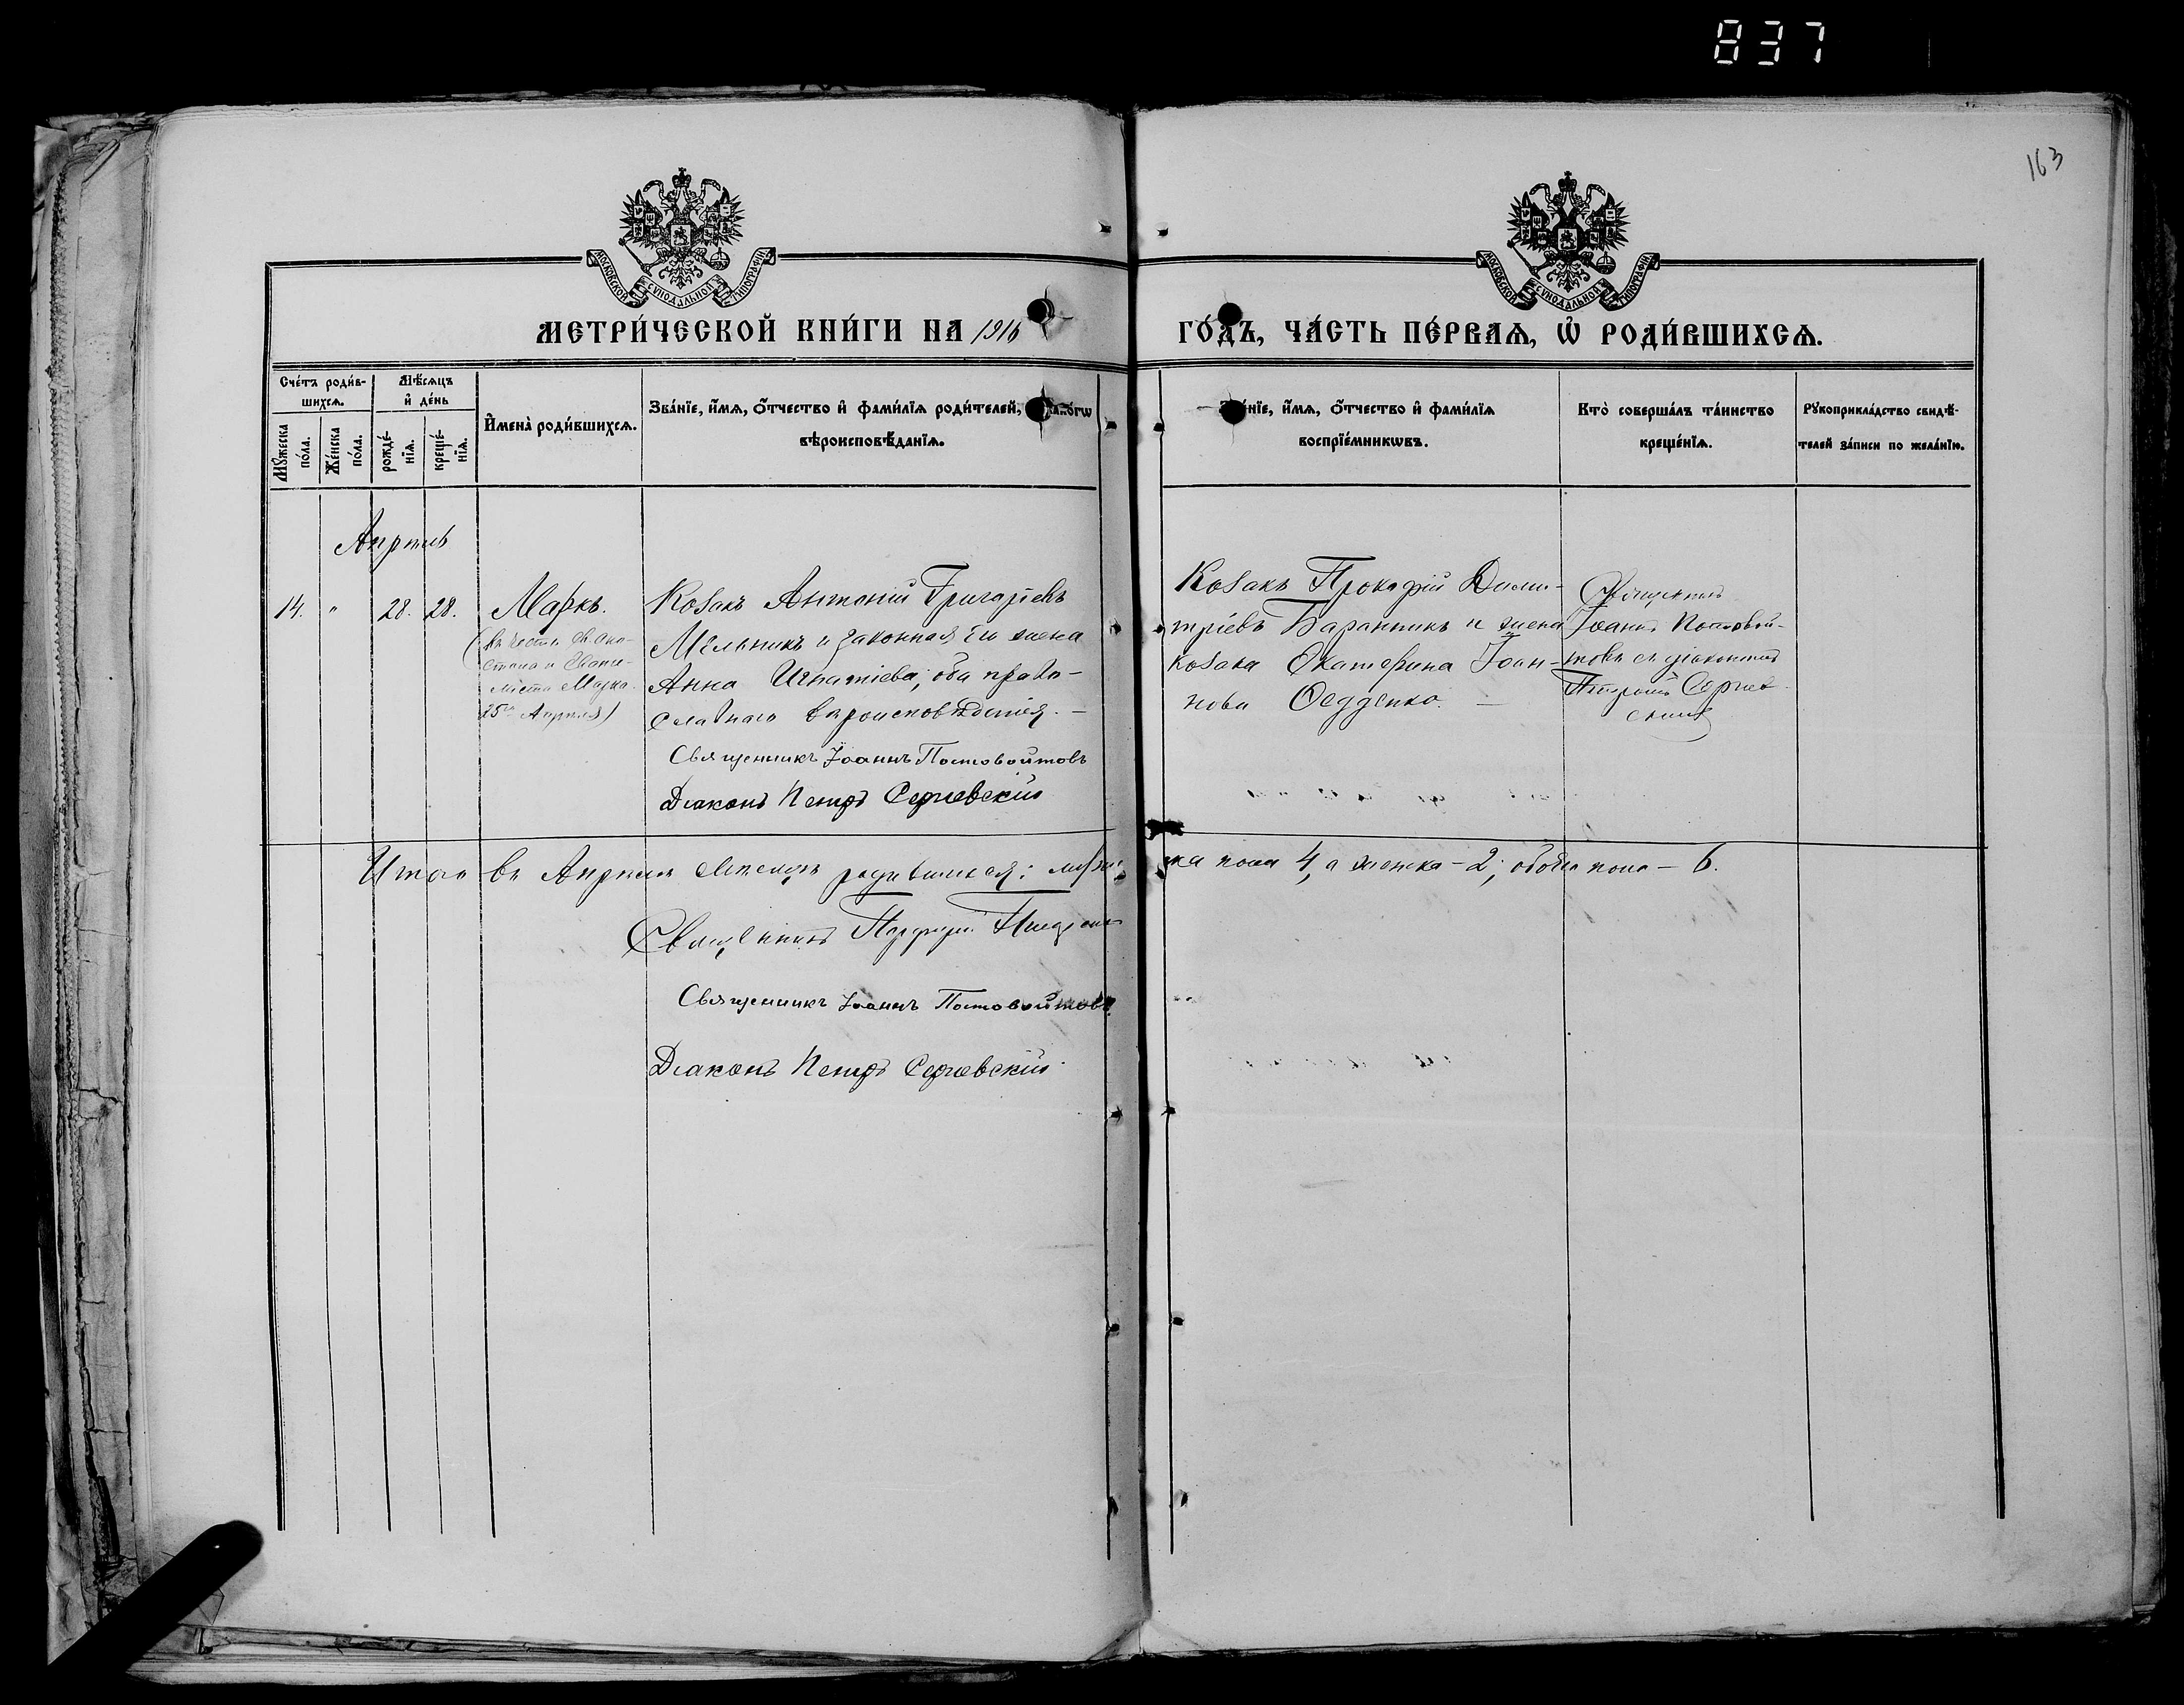 837
163
МОСКОВСКОЙ СѴНОДАЛЬНОЙ ТИПОГРАФІИ
МОСКОВСКОЙ СѴНОДАЛЬНОЙ ТИПОГРАФІИ
МЕТРИ́ЧЕСКОЙ КНИ́ГИ НА 1916
ГО́ДЪ, ЧА́СТЬ ПЕ́РВАѦ, Ѡ҆ РОДИ́ВШИХСѦ.
Сче́тъ роди́в-
шихсѧ.
Мꙋ́жеска
по́ла.
Же́нска
по́ла.
Мѣ́сѧцъ
и҆ де́нь
рожде́-
нїѧ.
креще́-
нїѧ.
И҆мена̀ роди́вшихсѧ.
Зва́нїе, и҆́мѧ, ѻ҆́тчество и҆ фами́лїѧ роди́телей,
вѣроисповѣ́данїѧ.
и҆́мѧ, ѻ҆́тчество и҆ фами́лїѧ
воспрїе́мникѡвъ.
Кто̀ соверша́лъ та́инство
креще́нїѧ.
Рꙋкоприкла́дство свидѣ́-
телей за́писи по жела́нїю.
Апрѣль
14. " 28. 28. Маркъ.
(въ честь св. Апо-
стола и Еванге-
листа Марка
25го Апрѣля)
Козакъ Антоній Григоріевъ
Мельникъ и законная его жена
Анна Игнатіева, оба право-
славнаго вѣроисповѣданія. —
Священникъ Іоаннъ Постовойтовъ
Діаконъ Петръ Сергіевскій
Козакъ Прокофій Дими-
тріевъ Баранникъ и жена
козака Екатерина Іоан-
нова Федденко. —
Священникъ
Іоаннъ Постовой-
товъ съ діакономъ
Петромъ Сергіев-
скимъ
Итого въ Апрѣлѣ мѣсяцѣ родившихся: муже-
ска пола 4, а женска — 2; обоего пола — 6.
Священникъ
Священникъ Іоаннъ Постовойтовъ.
Діаконъ Петръ Сергіевскій